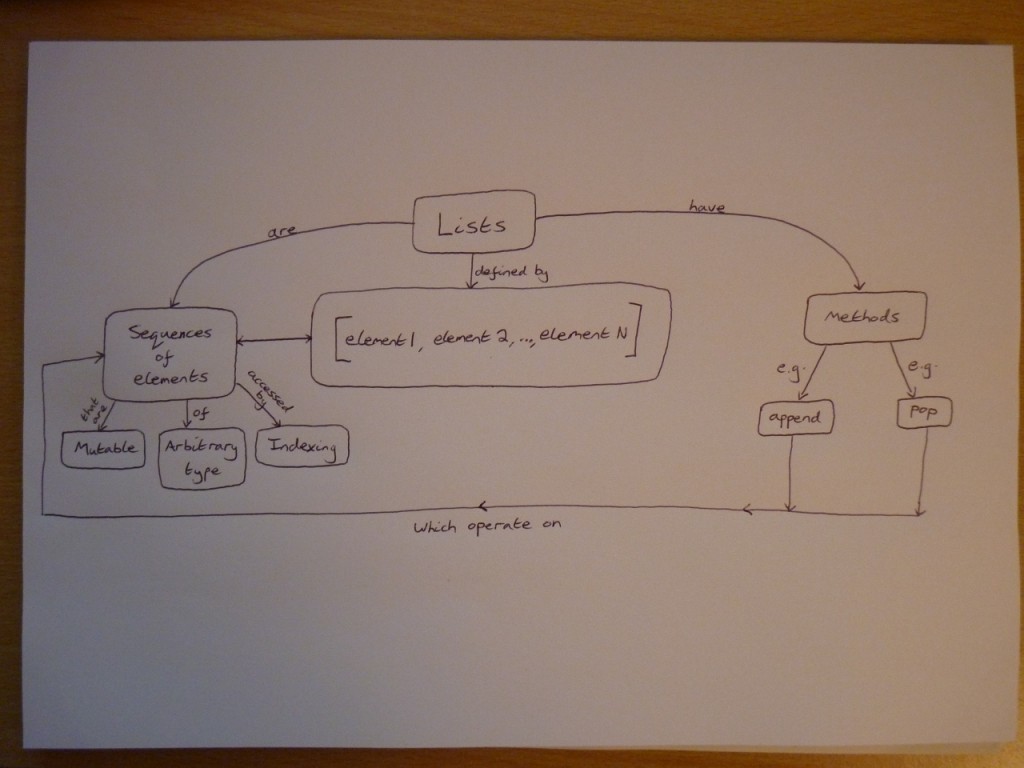 Lists
are
have
defined by
Sequences
of
elements
[element 1, element 2, ..., element N]
Methods
that
are
of
accessed
by
e.g.
e.g.
Mutable
Arbitrary
type
Indexing
append
pop
Which operate on